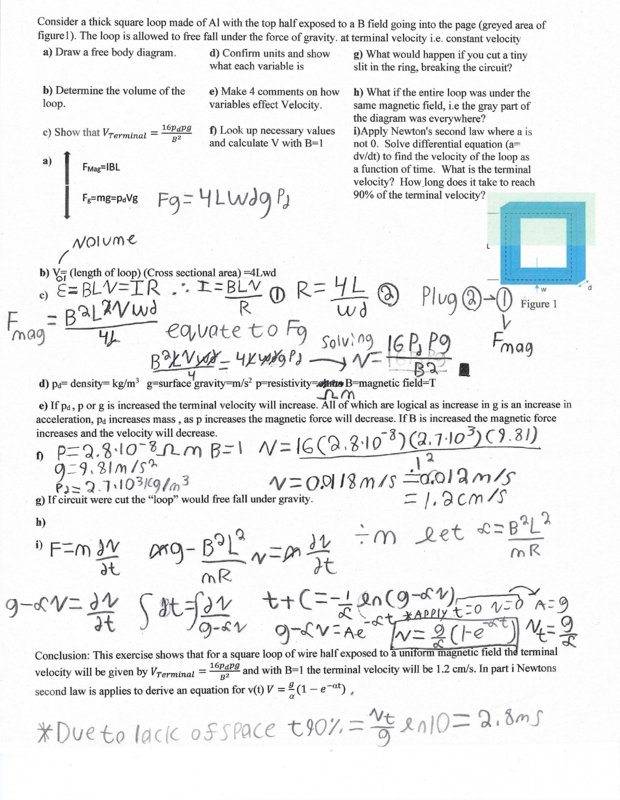 Consider a thick square loop made of Al with the top half exposed to a B field going into the page (greyed area of
figure1). The loop is allowed to free fall under the force of gravity. at terminal velocity i.e. constant velocity
a) Draw a free body diagram.
d) Confirm units and show
what each variable is
g) What would happen if you cut a tiny
slit in the ring, breaking the circuit?
b) Determine the volume of the
loop.
e) Make 4 comments on how
variables effect Velocity.
h) What if the entire loop was under the
same magnetic field, i.e the gray part of
the diagram was everywhere?
c) Show that V_Terminal = 16p_dpg/B²
f) Look up necessary values
and calculate V with B=1
i)Apply Newton's second law where a is
not 0. Solve differential equation (a=
dv/dt) to find the velocity of the loop as
a function of time. What is the terminal
velocity? How long does it take to reach
90% of the terminal velocity?
a)
F_Mag=IBL
F_g=mg=p_dVg Fg=4Lwdg P_d
L
w
d
Figure 1
Volume
b) V= (length of loop) (Cross sectional area) =4Lwd
c) ε=BLV=IR ∴ I=BLV/R ① R=4L/wd ② Plug ②→① → Fmag
Fmag = B²L²Vwd/4L equate to Fg solving
B²LVwd/4 = 4Lwdg P_d → V= 16 P_d Pg/B² ■
d) p_d= density= kg/m³ g=surface gravity=m/s² p=resistivity= Ωm B=magnetic field=T
e) If p_d, p or g is increased the terminal velocity will increase. All of which are logical as increase in g is an increase in
acceleration, p_d increases mass , as p increases the magnetic force will decrease. If B is increased the magnetic force
increases and the velocity will decrease.
f) P=2.8·10⁻⁸ Ωm B=1 V=16(2.8·10⁻⁸)(2.7·10³)(9.81)/1²
g=9.81m/s²
P_d=2.7·10³kg/m³ V=0.0118m/s ≈0.012m/s
=1.2cm/s
g) If circuit were cut the “loop” would free fall under gravity.
h)
i) F=m dv/dt mg-B²L²/mR v=m dv/dt ÷m let α=B²L²/mR
g-αv=dv/dt ∫dt=∫dv/g-αv t+C=-1/α ln(g-αv) *APPLY t=0 v=0 A=g
g-αv=Ae^-αt v=g/α(1-e^-αt) Vt=g/α
Conclusion: This exercise shows that for a square loop of wire half exposed to a uniform magnetic field the terminal
velocity will be given by V_Terminal = 16p_dpg/B² and with B=1 the terminal velocity will be 1.2 cm/s. In part i Newtons
second law is applies to derive an equation for v(t) V = g/α (1 − e^−αt) ,
*Due to lack of space t90% = Vt/g ln10 = 2.8ms